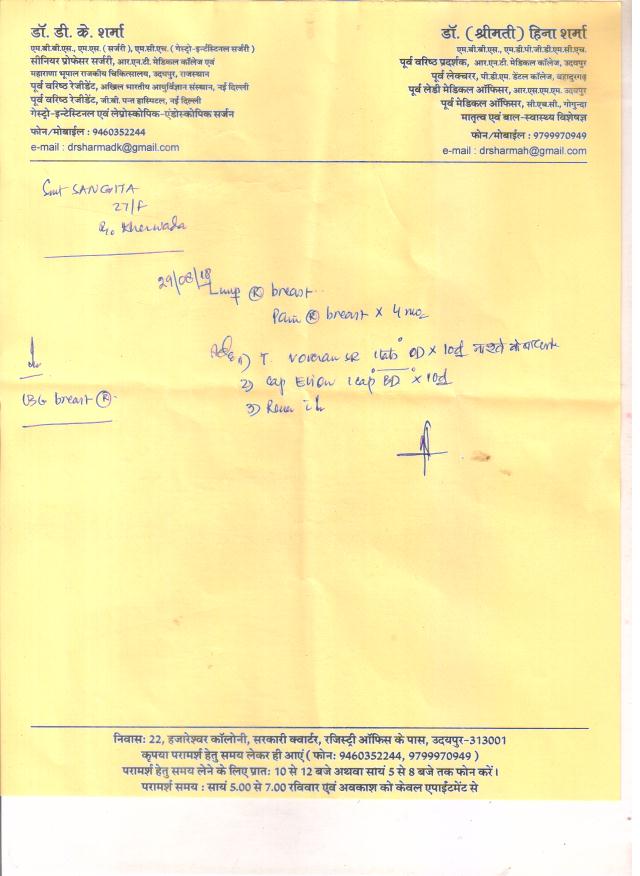 डॉ. डी. के. शर्मा
एम.बी.बी.एस., एम.एस. ( सर्जरी ), एम.सी.एच. ( गेस्ट्रो-इन्टेंस्टिनल सर्जरी )
सीनियर प्रोफेसर सर्जरी, आर.एन.टी. मेडिकल कॉलेज एवं
महाराणा भूपाल राजकीय चिकित्सालय, उदयपुर, राजस्थान
पूर्व वरिष्ठ रेजीडेंट, अखिल भारतीय आयुर्विज्ञान संस्थान, नई दिल्ली
पूर्व वरिष्ठ रेजीडेंट, जी.बी. पन्त हास्पिटल, नई दिल्ली
गेस्ट्रो-इन्टेस्टिनल एवं लेप्रोस्कोपिक-एंडोस्कोपिक सर्जन
फोन/मोबाईल : 9460352244
e-mail : drsharmadk@gmail.com
डॉ. (श्रीमती) हिना शर्मा
एम.बी.बी.एस., एम.डी.पी.जी.डी.एम.सी.एच.
पूर्व वरिष्ठ प्रदर्शक, आर.एन.टी. मेडिकल कॉलेज, उदयपुर
पूर्व लेक्चरर, पी.डी.एम. डेंटल कॉलेज, बहादुरगढ़
पूर्व लेडी मेडिकल ऑफिसर, आर.एस.एम.एम. उदयपुर
पूर्व मेडिकल ऑफिसर, सी.एच.सी., गोगुन्दा
मातृत्व एवं बाल-स्वास्थ्य विशेषज्ञ
फोन/मोबाईल : 9799970949
e-mail : drsharmah@gmail.com
Smt SANGITA
27/F
R/o Kherwada
29/08/18
Lump Ⓡ breast
Pain Ⓡ breast x 4 mo
1) T. Voveran SR 1 tab OD x 10d
2) Cap 1 cap BD x 10d
3)
USG breast Ⓡ
निवास: 22, हजारेश्वर कॉलोनी, सरकारी क्वार्टर, रजिस्ट्री ऑफिस के पास, उदयपुर-313001
कृपया परामर्श हेतु समय लेकर ही आएं ( फोन: 9460352244, 9799970949 )
परामर्श हेतु समय लेने के लिए प्रातः 10 से 12 बजे अथवा सायं 5 से 8 बजे तक फोन करें।
परामर्श समय : सायं 5.00 से 7.00 रविवार एवं अवकाश को केवल एपाईटमेंट से